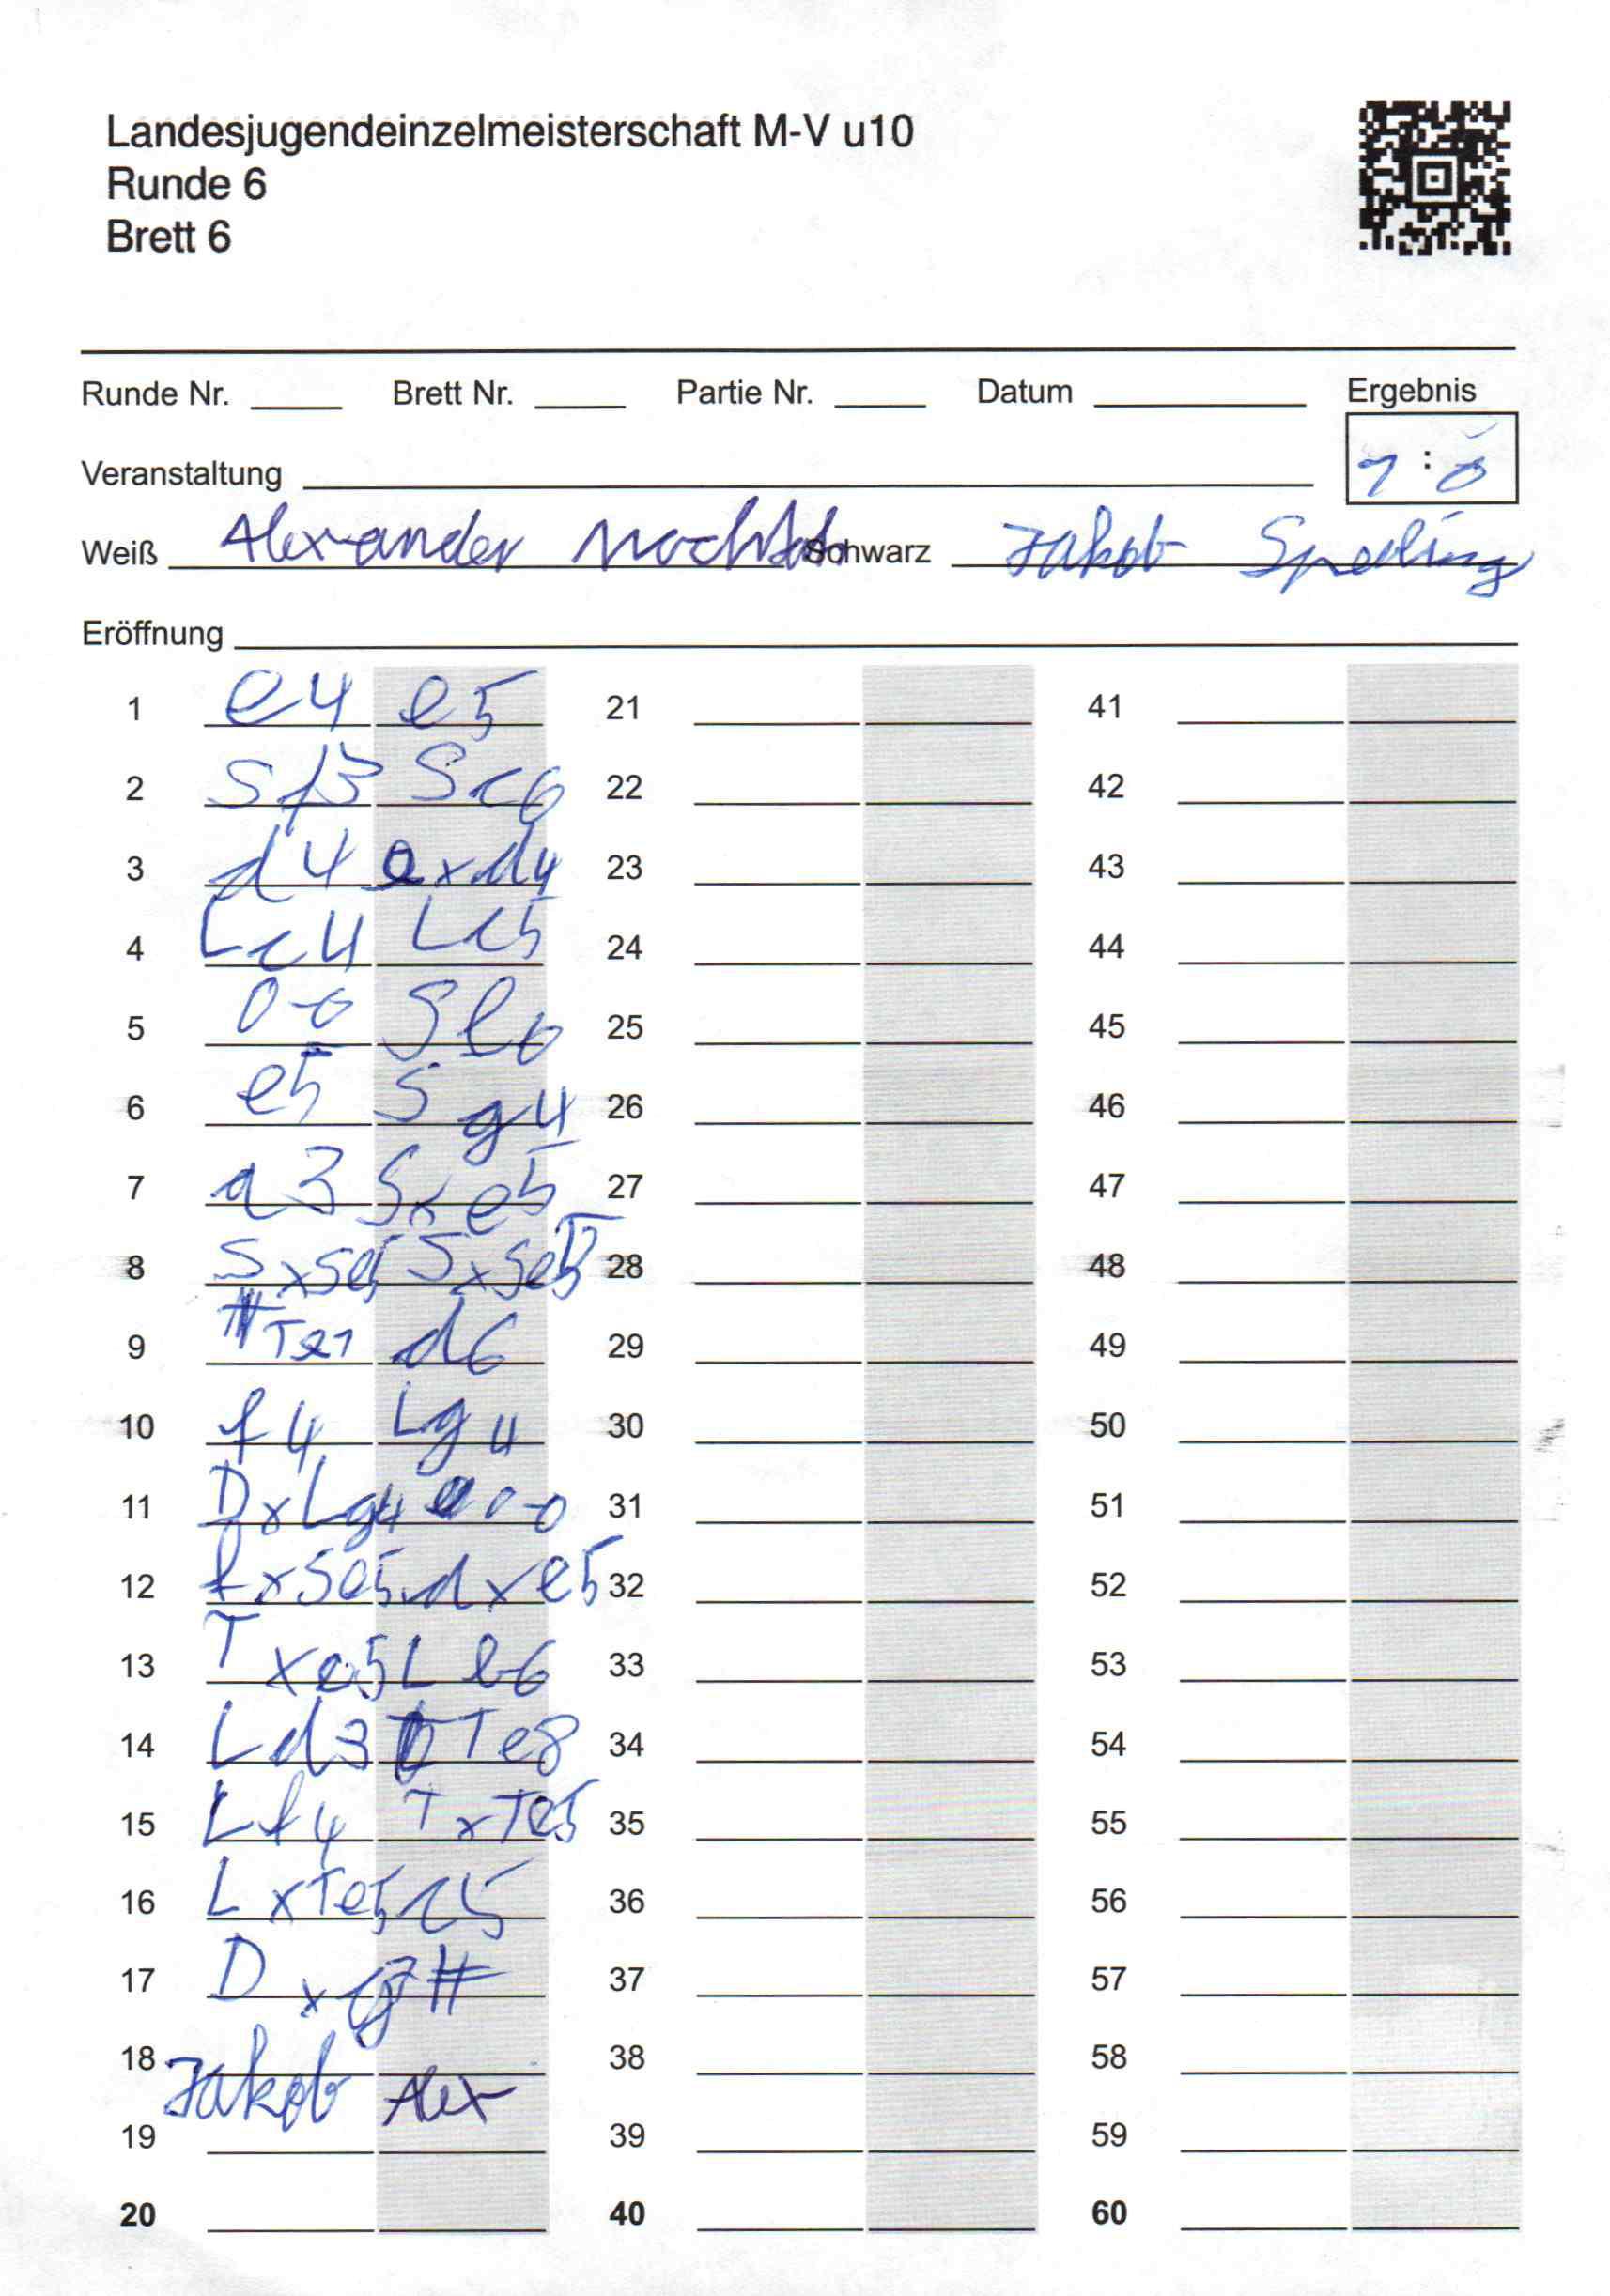 Landesjugendeinzelmeisterschaft M-V u10
Runde 6
Brett 6
Runde Nr. Brett Nr. Partie Nr. Datum Ergebnis
Veranstaltung 1 : 0
Weiß Alexander Schwarz Jakob Sperling
Eröffnung
1 e4 e5 21 41
2 Sf3 Sc6 22 42
3 d4 exd4 23 43
4 Lc4 Lc5 24 44
5 0-0 25 45
6 e5 Sg4 26 46
7 a3 Sxe5 27 47
8 SxSe5 SxSe5 28 48
9 Te1 d6 29 49
10 f4 Lg4 30 50
11 DxLg4 0-0 31 51
12 fxSe5 dxe5 32 52
13 Txe5 Lb6 33 53
14 Ld3 Te8 34 54
15 Lf4 TxTe5 35 55
16 LxTe5 c5 36 56
17 Dxg7# 37 57
18 38 58
Jakob Alex
19 39 59
20 40 60